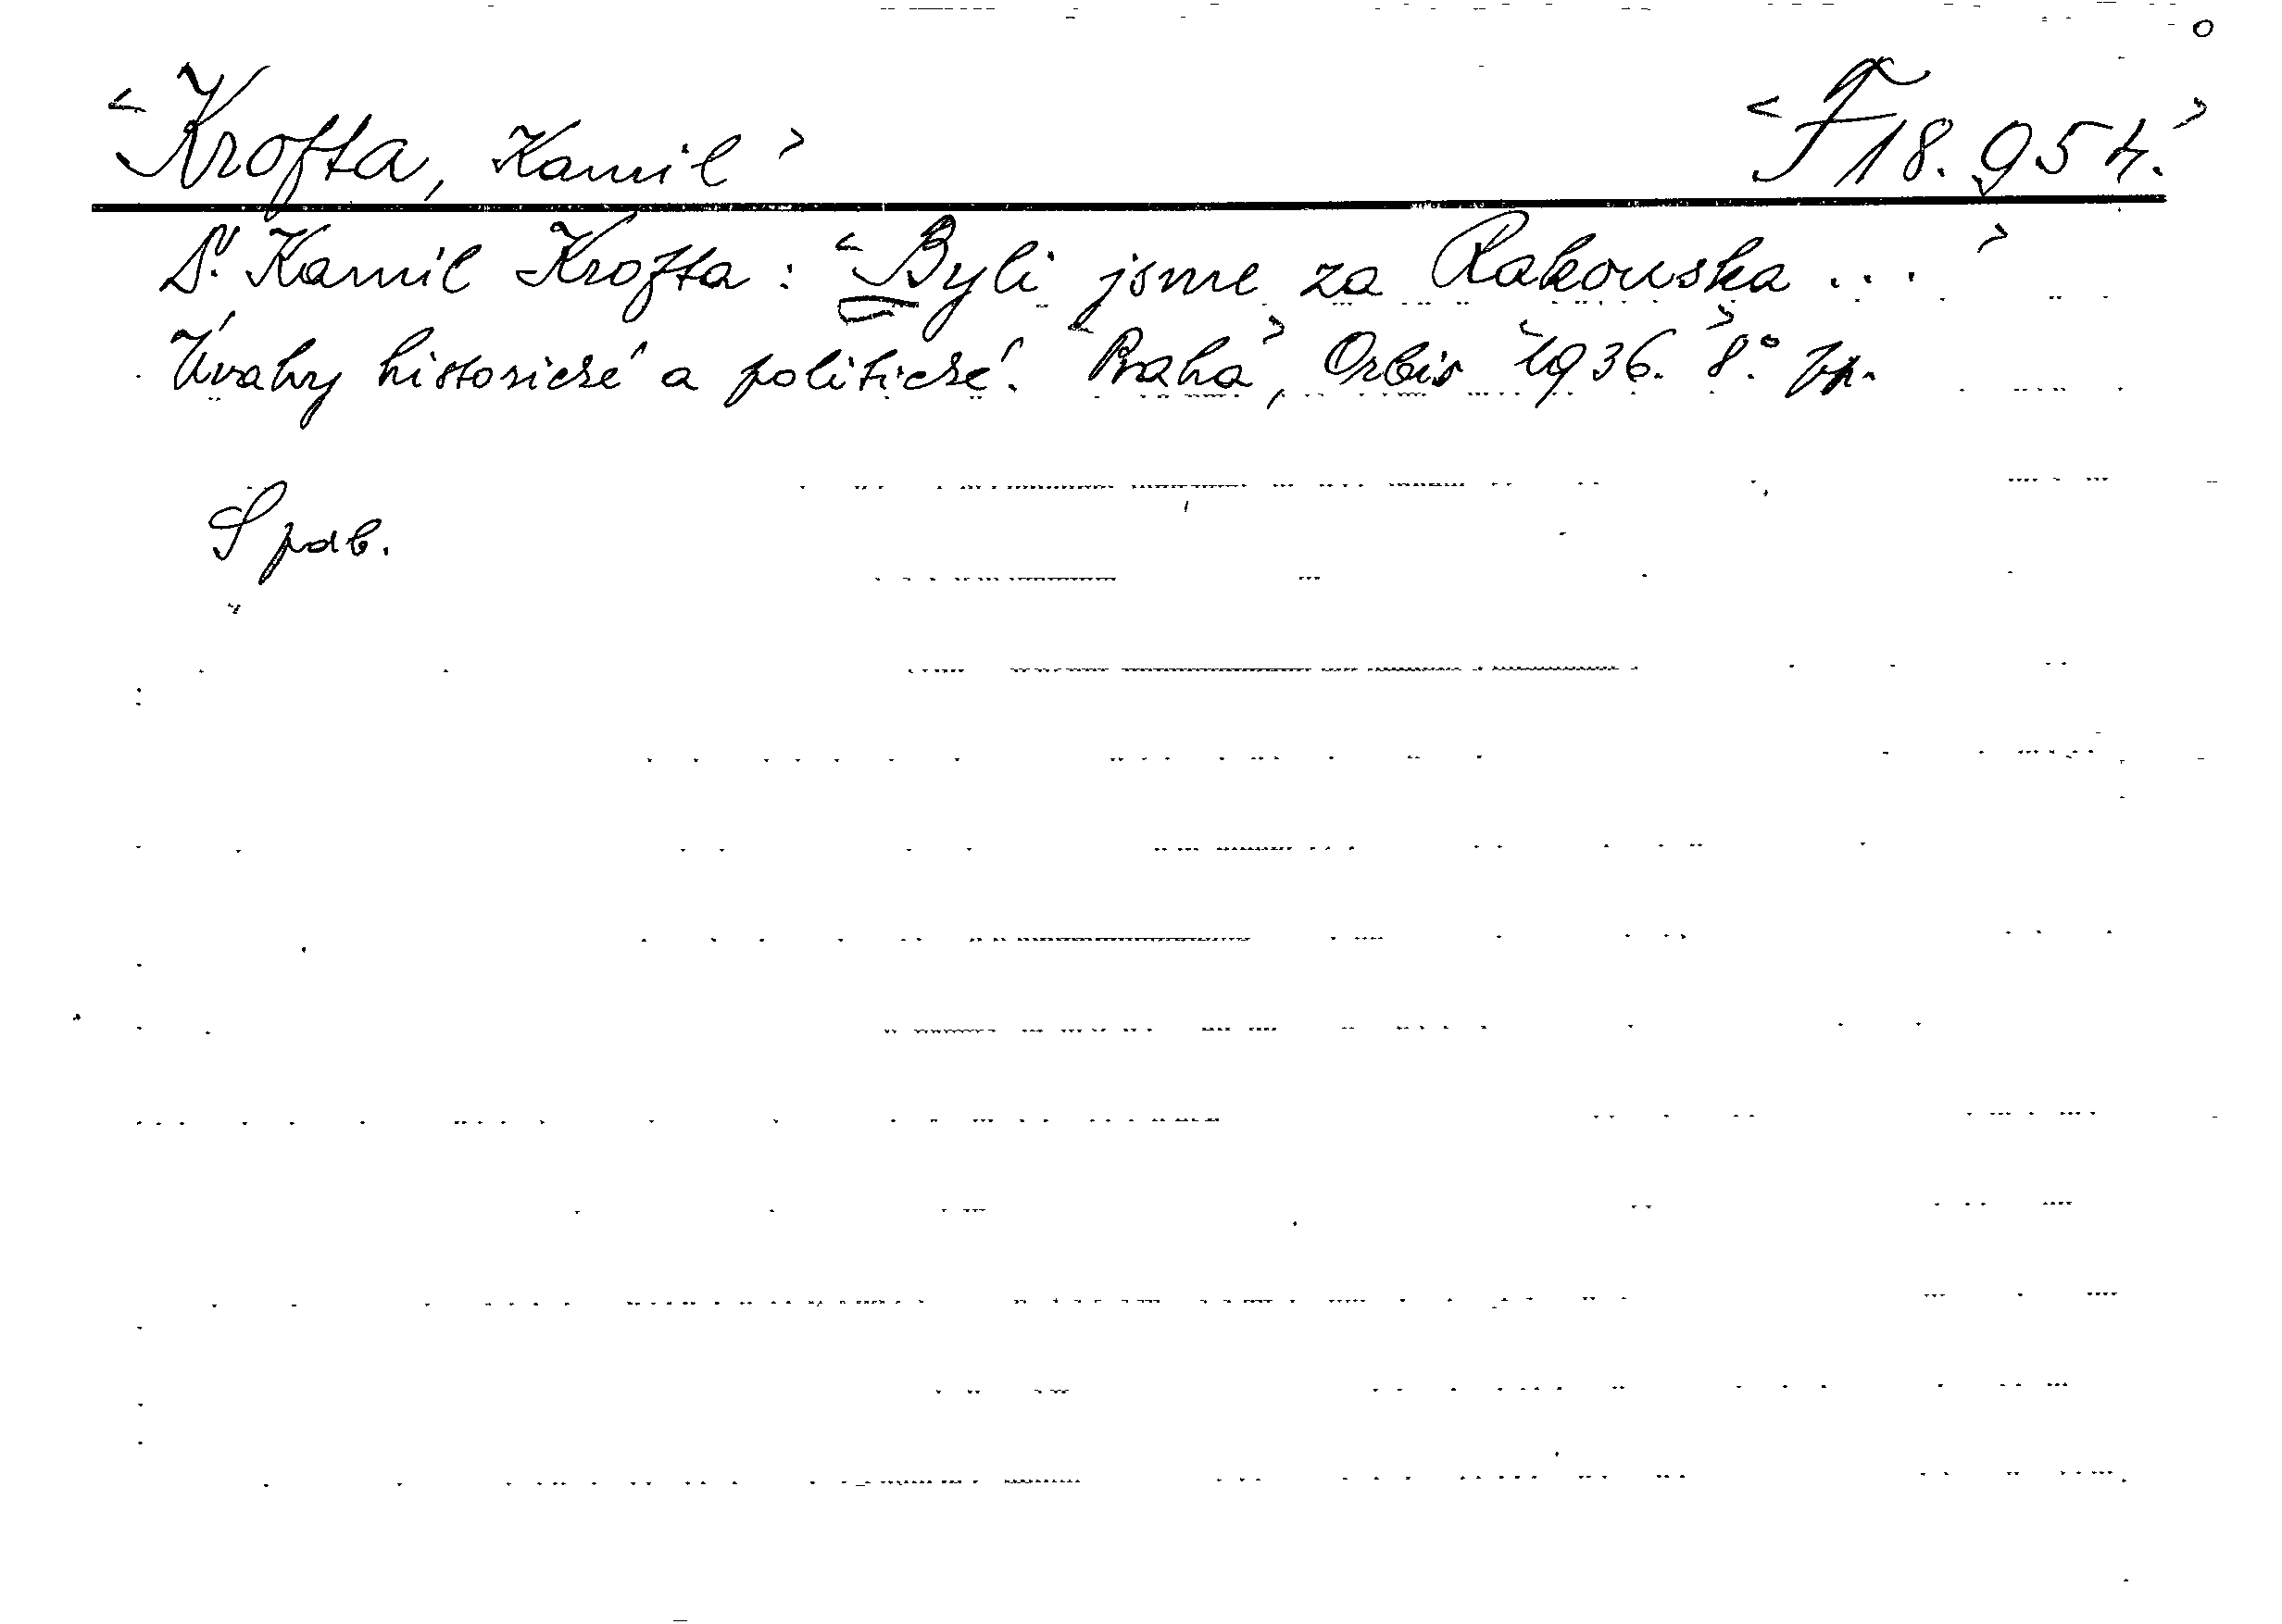 <Krofta, Kamil> <F 18.954.>
Dr. Kamil Krofta: <Byli jsme za Rakouska ...>
Úvahy historické a politické. <Praha>, Orbis <1936.> 8.°
S podb.